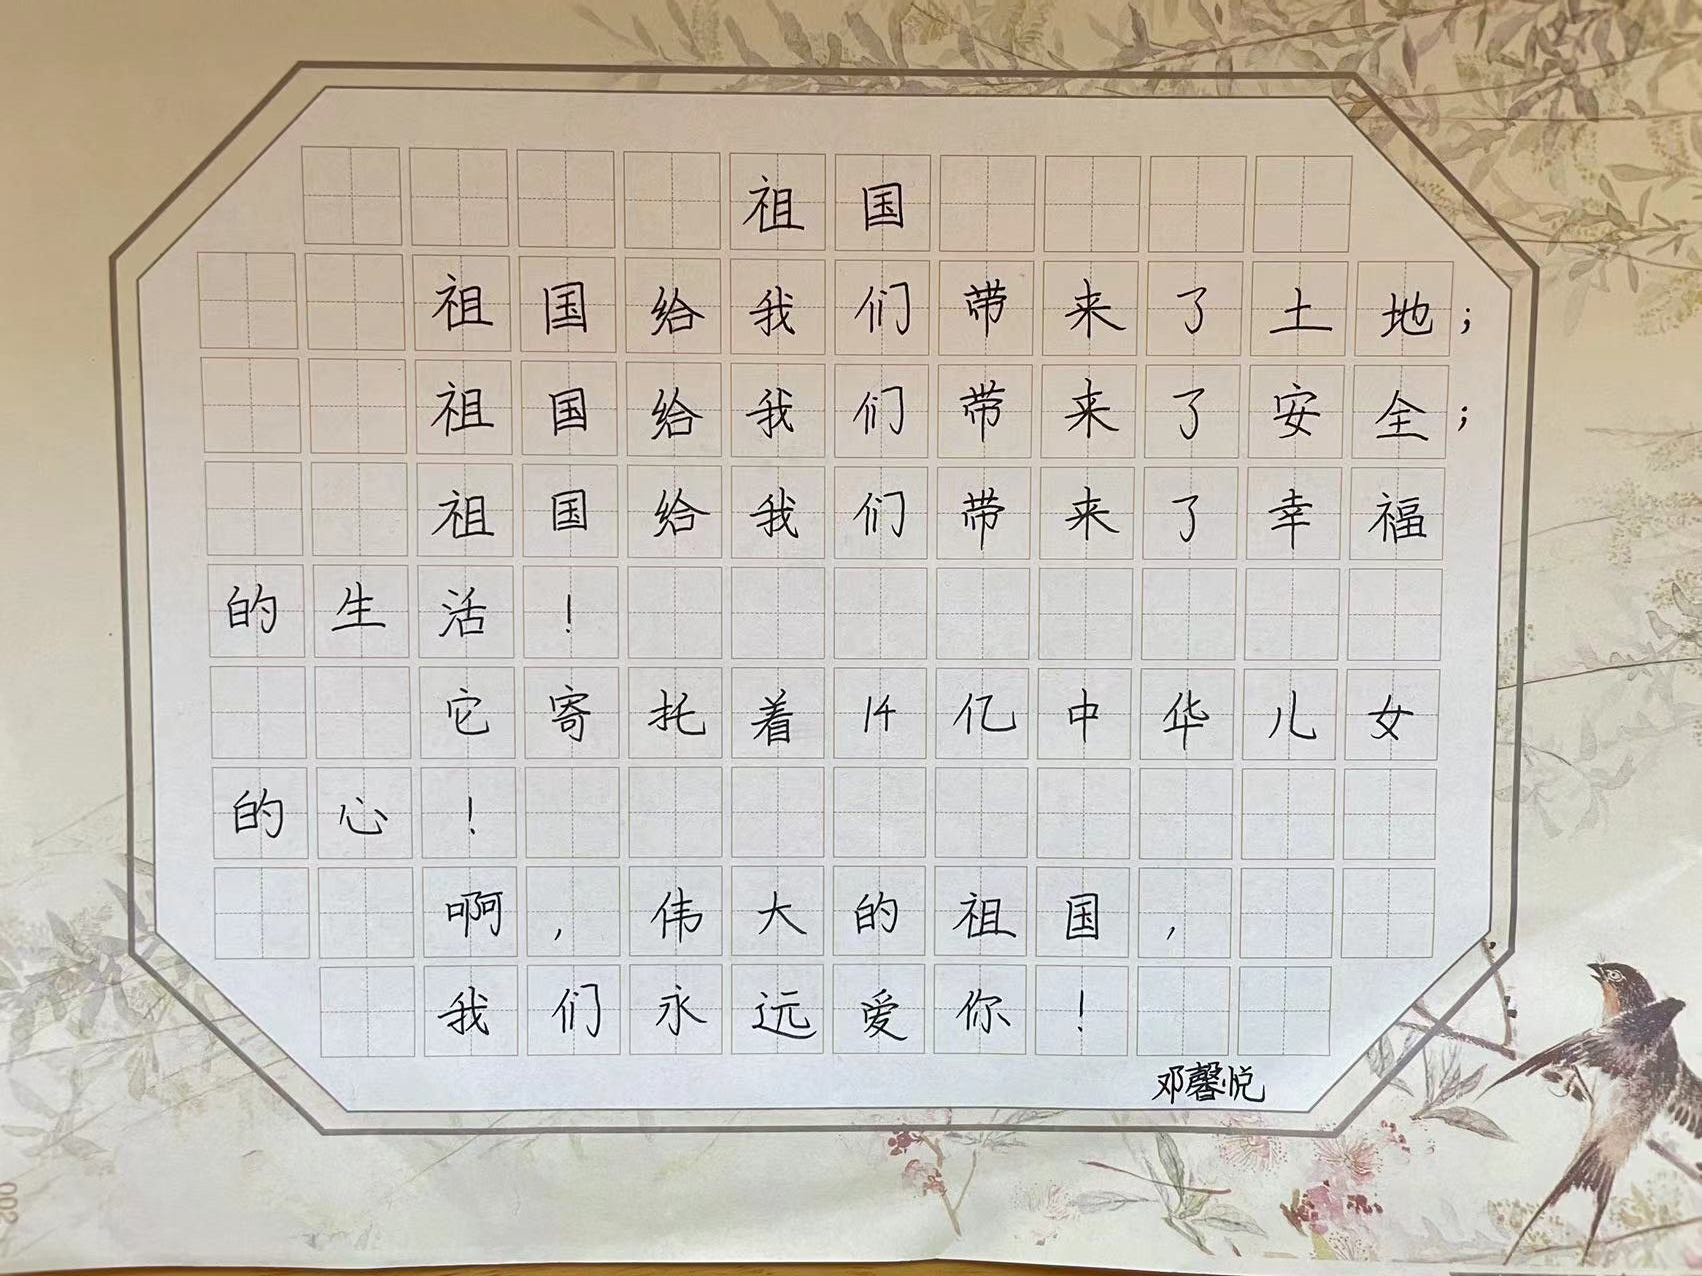 祖国
祖国给我们带来了土地；
祖国给我们带来了安全；
祖国给我们带来了幸福
的生活！
它寄托着14亿中华儿女
的心！
啊，伟大的祖国，
我们永远爱你！
邓馨悦
002